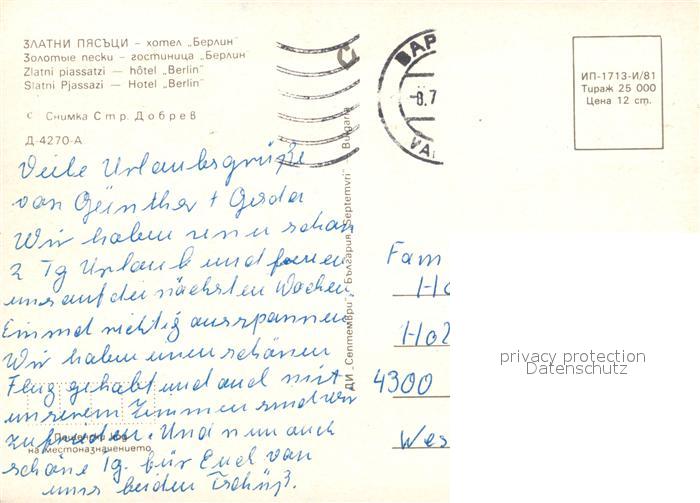 ЗЛАТНИ ПЯСЪЦИ – хотел „Берлин"
Золотые пески – гостиница „Берлин
Zlatni piassatzi – hôtel „Berlin"
Slatni Pjassazi – Hotel „Berlin"
с Снимка Стр. Добрев
Д-4270-А
Viele Urlaubsgrüße
von Günther + Gerda
Wir haben nun schon
2 Tg Urlaub und freuen
uns auf die nächsten Wochen.
Einmal richtig ausspannen.
Wir haben einen schönen
Flug gehabt und auch mit
unserem Zimmer sind wir
zufrieden. Und nun auch
schöne Tg. für Euch von
uns beiden Tschüß.
на местоназначението
ДИ „Септември" – България „Septemvri" Bulgaria
ВАР
-8.7
VA
ИП-1713-И/81
Тираж 25 000
Цена 12 ст.
Fam
Ho
Hol
4300
Wes
privacy protection
Datenschutz